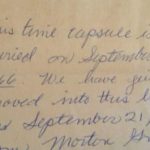 his time capsule is
uried on September
66. We have ju
oved into this b
s September 21,
Morton